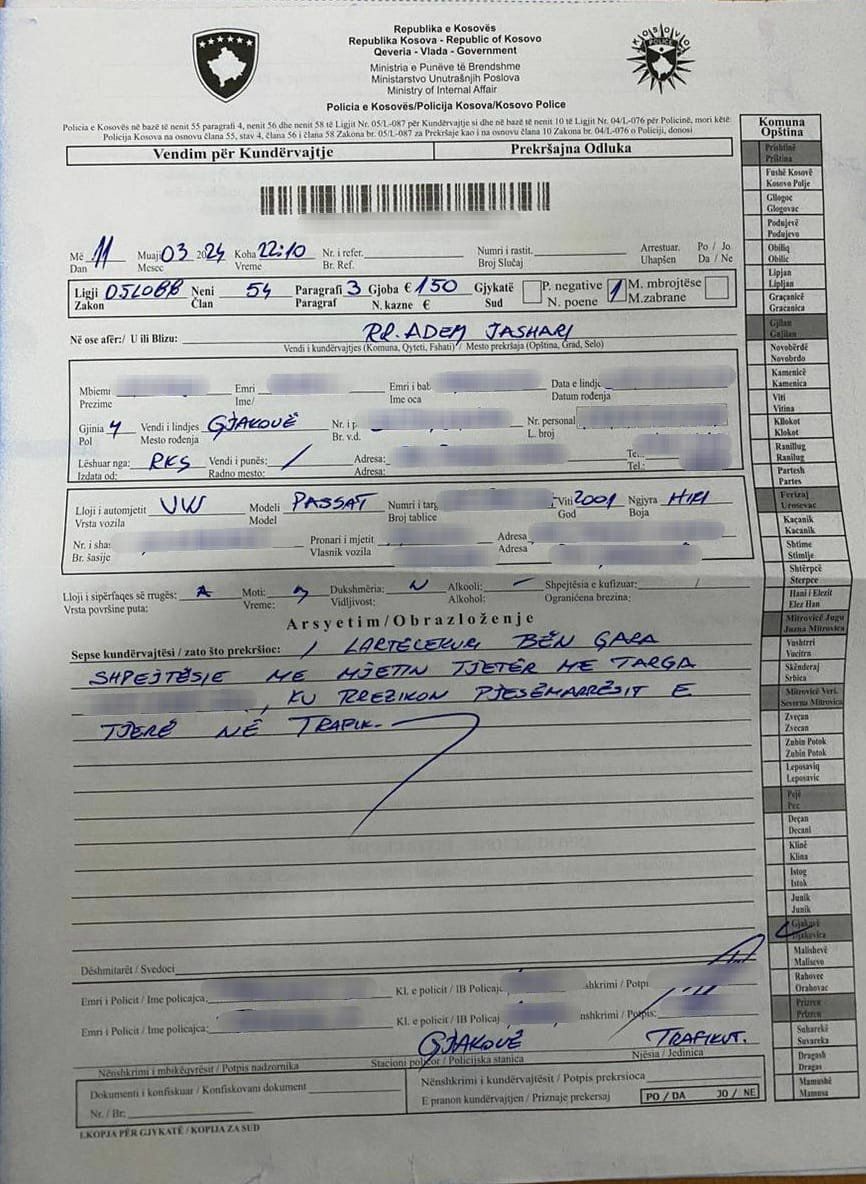 Republika e Kosovës
Republika Kosova - Republic of Kosovo
Qeveria - Vlada - Government
Ministria e Punëve të Brendshme
Ministarstvo Unutrašnjih Poslova
Ministry of Internal Affair
Policia e Kosovës/Policija Kosova/Kosovo Police
KOSOVO
POLICE
Policia e Kosovës në bazë të nenit 55 paragrafi 4, nenit 56 dhe nenit 58 të Ligjit Nr. 05/L-087 për Kundërvajtje si dhe në bazë të nenit 10 të Ligjit Nr. 04/L-076 për Policinë, mori këtë:
Policija Kosova na osnovu člana 55, stav 4, člana 56 i člana 58 Zakona br. 05/L-087 za Prekršaje kao i na osnovu člana 10 Zakona br. 04/L-076 o Policiji, donosi
Vendim për Kundërvajtje Prekršajna Odluka
Më 11 Muaji 03 2024 Koha 22:10 Nr. i refer. Numri i rastit. Arrestuar. Po / Jo
Dan Mesec Vreme Br. Ref. Broj Slučaj Uhapšen Da / Ne
Ligji 05L088 Neni 54 Paragrafi 3 Gjoba € 150 Gjykatë P. negative 1 M. mbrojtëse
Zakon Član Paragraf N. kazne € Sud N. poene M. zabrane
Në ose afër:/ U ili Blizu: RR. ADEM JASHARI
Vendi i kundërvajtjes (Komuna, Qyteti, Fshati) / Mesto prekršaja (Opština, Grad, Selo)
Mbiemi Emri Emri i bab Data e lindje
Prezime Ime/ Ime oca Datum rođenja
Gjinia Vendi i lindjes GJAKOVË Nr. i p Nr. personal
Pol Mesto rođenja Br. v.d. L. broj
Lëshuar nga: RKS Vendi i punës: / Adresa: Te
Izdata od: Radno mesto: Adresa: Tel.:
Lloji i automjetit VW Modeli PASSAT Numri i targ Viti 2001 Ngjyra HIRI
Vrsta vozila Model Broj tablice God Boja
Nr. i shas Pronari i mjetit Adresa
Br. šasije Vlasnik vozila Adresa
Lloji i sipërfaqes së rrugës: A Moti: Dukshmëria: N Alkooli: – Shpejtësia e kufizuar: /
Vrsta površine puta: Vreme: Vidljivost: Alkohol: Ograničena brezina:
Arsyetim/Obrazloženje
Sepse kundërvajtësi / zato što prekršioc: I LARTËCEKURI BËN GARA
SHPEJTËSIE ME MJETIN TJETËR ME TARGA
, KU RREZIKON PJESËMARRËSIT E
TJERË NË TRAFIK.
Dëshmitarët / Svedoci
Emri i Policit / Ime policajca: Kl. e policit / IB Policajc shkrimi / Potpi
Emri i Policit / Ime policajca: Kl. e policit / IB Policaj nshkrimi / Potpis:
GJAKOVË TRAFIKUT.
Nënshkrimi i mbikëqyrësit / Potpis nadzornika Stacioni policor / Policijska stanica Njësia / Jedinica
Dokumenti i konfiskuar / Konfiskovani dokument Nënshkrimi i kundërvajtësit / Potpis prekrsioca
Nr. / Br. E pranon kundërvajtjen / Priznaje prekersaj PO / DA JO / NE
I.KOPJA PËR GJYKATË / KOPIJA ZA SUD
Komuna
Opština
Prishtinë
Priština
Fushë Kosovë
Kosovo Polje
Gllogoc
Glogovac
Podujevë
Podujevo
Obiliq
Obilic
Lipjan
Lipljan
Graçanicë
Gracanica
Gjilan
Gnjilan
Novobërdë
Novobrdo
Kamenicë
Kamenica
Viti
Vitina
Kllokot
Klokot
Ranillug
Ranilug
Partesh
Partes
Ferizaj
Urosevac
Kaçanik
Kacanik
Shtime
Stimlje
Shtërpcë
Sterpce
Hani i Elezit
Elez Han
Mitrovicë Jugu
Juzna Mitrovica
Vushtrri
Vucitrn
Skënderaj
Srbica
Mitrovicë Veri.
Severna Mitrovica
Zveçan
Zvecan
Zubin Potok
Zubin Potok
Leposaviq
Leposavic
Pejë
Pec
Deçan
Decani
Klinë
Klina
Istog
Istok
Junik
Junik
Gjakovë
Djakovica
Malishevë
Malisevo
Rahovec
Orahovac
Prizren
Prizren
Suharekë
Suvareka
Dragash
Dragas
Mamushë
Mamusa